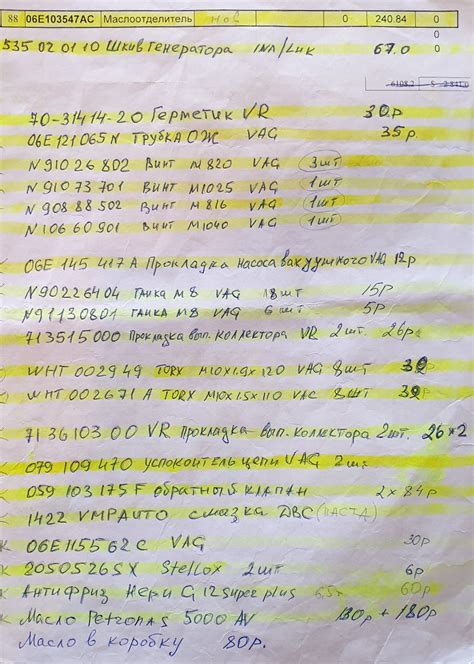 88 06E103547AC Маслоотделитель нов 0 240.84 0
0
535 02 01 10 Шкив генератора INA/Luk 67.0
70-31414-20 Герметик VR 30р
06E 121 065 N Трубка ОЖ VAG 35р
N 910 268 02 Винт М820 VAG 3шт
N 910 737 01 Винт М1025 VAG 1шт
N 908 885 02 Винт М816 VAG 1шт
N 106 60 901 Винт М1040 VAG 1шт
06E 145 417A Прокладка насоса вакуумного VAG 12р
N 902 264 04 Гайка М8 VAG 18шт 15р
N 911 308 01 Гайка М8 VAG 6шт 5р
713515000 Прокладка вып. коллектора VR 2шт. 26р
WHT 002949 TORX М10х1.9х120 VAG 8шт
WHT 002671 A TORX М10х1.5х110 VAG 8шт
713610300 VR Прокладка вып. коллектора 2шт. 26*2
079 109 470 успокоитель цепи VAG 2шт
059 103 175 F обратный клапан 2 х 84р
1422 VMPAUTO смазка ДВС (паста)
06E115562C VAG 30р
20505265X Stellox 2шт 6р
Антифриз Hepu G12 super plus 60р
Масло Petronas 5000 AV 130р + 180р
Масло в коробку 80р.